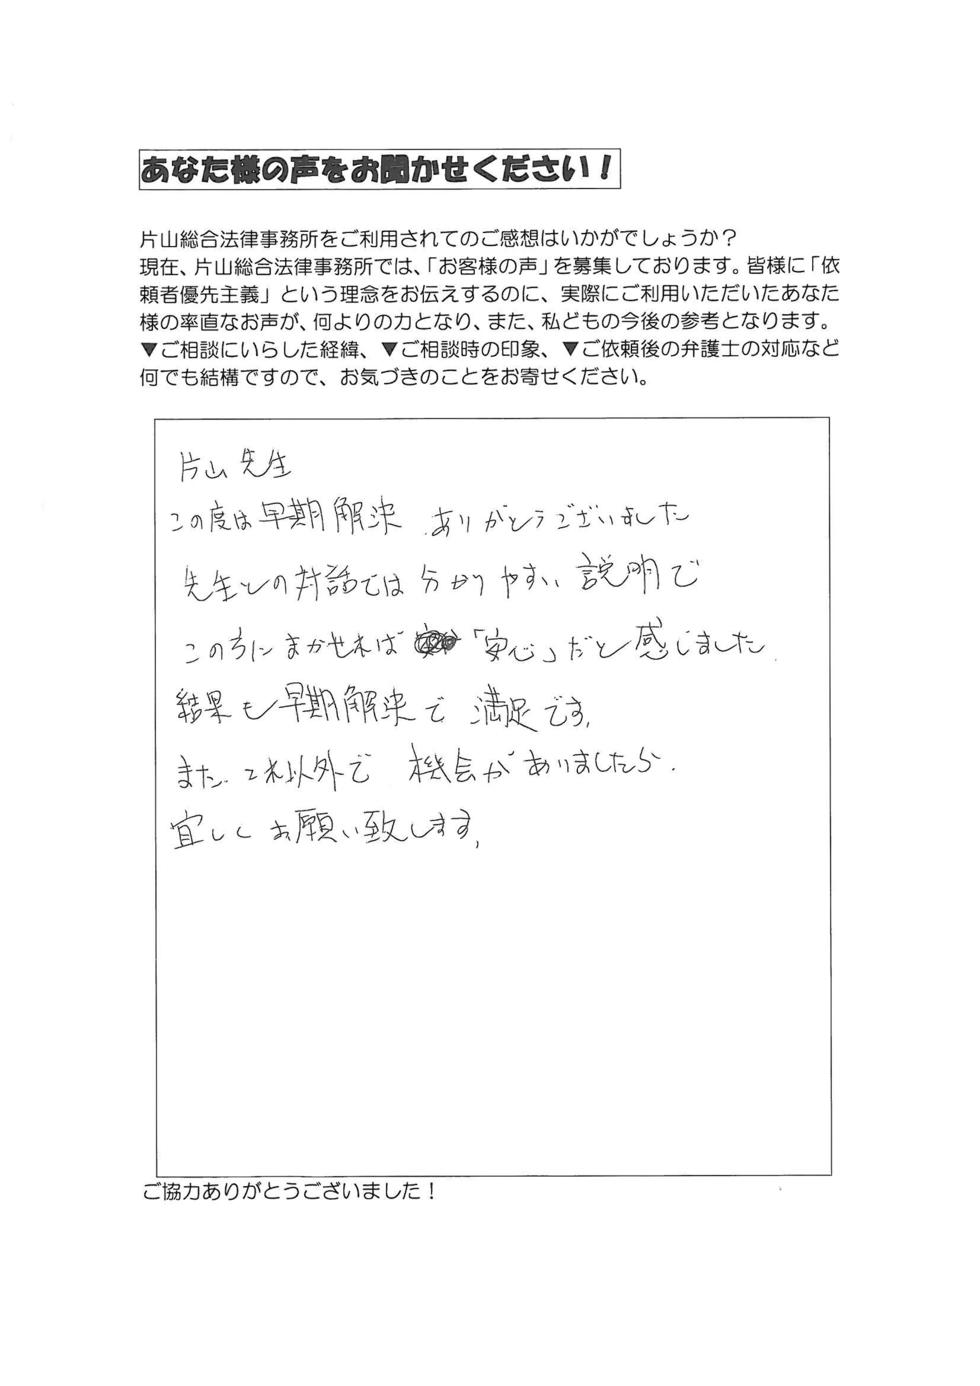 あなた様の声をお聞かせください！
片山総合法律事務所をご利用されてのご感想はいかがでしょうか？
現在、片山総合法律事務所では、「お客様の声」を募集しております。皆様に「依
頼者優先主義」という理念をお伝えするのに、実際にご利用いただいたあなた
様の率直なお声が、何よりの力となり、また、私どもの今後の参考となります。
▼ご相談にいらした経緯、▼ご相談時の印象、▼ご依頼後の弁護士の対応など
何でも結構ですので、お気づきのことをお寄せください。
片山先生
この度は早期解決、ありがとうございました
先生との対話では分かりやすい説明で
この方にまかせれば「安心」だと感じました.
結果も早期解決で満足です.
また、これ以外で機会がありましたら.
宜しくお願い致します.
ご協力ありがとうございました！